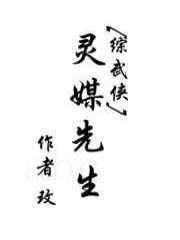 [综武侠]
灵媒先生
作者玫
abc